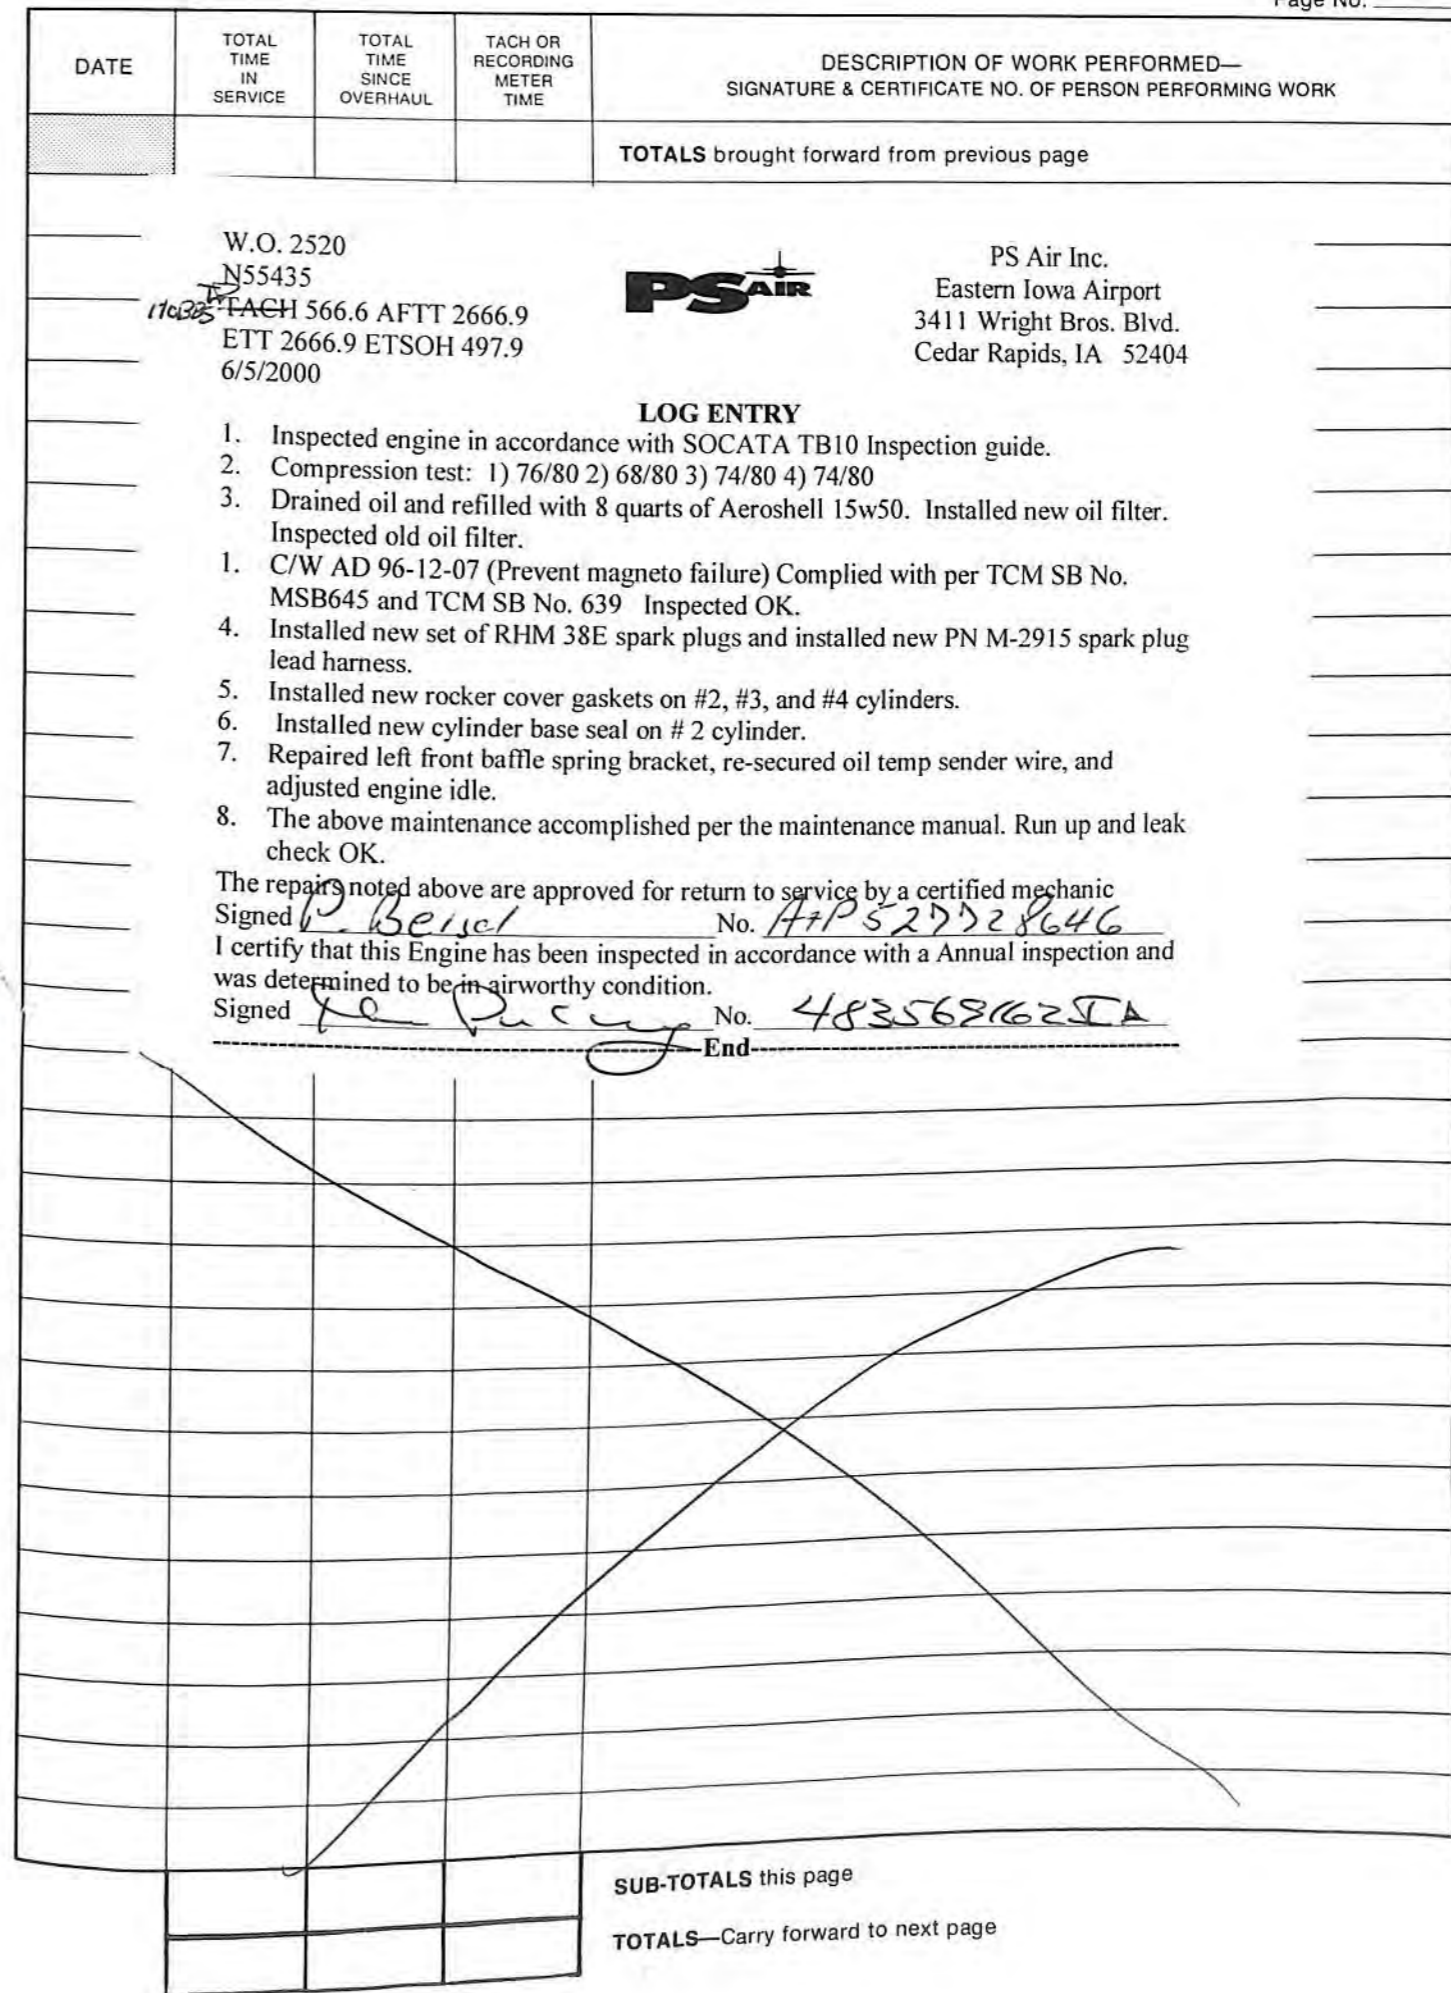 Page No.
DATE
TOTAL TIME IN SERVICE
TOTAL TIME SINCE OVERHAUL
TACH OR RECORDING METER TIME
DESCRIPTION OF WORK PERFORMED—
SIGNATURE & CERTIFICATE NO. OF PERSON PERFORMING WORK
TOTALS brought forward from previous page
W.O. 2520
N55435
HOBBS TACH 566.6 AFTT 2666.9
ETT 2666.9 ETSOH 497.9
6/5/2000
PS AIR
PS Air Inc.
Eastern Iowa Airport
3411 Wright Bros. Blvd.
Cedar Rapids, IA 52404
LOG ENTRY
1. Inspected engine in accordance with SOCATA TB10 Inspection guide.
2. Compression test: 1) 76/80 2) 68/80 3) 74/80 4) 74/80
3. Drained oil and refilled with 8 quarts of Aeroshell 15w50. Installed new oil filter.
Inspected old oil filter.
1. C/W AD 96-12-07 (Prevent magneto failure) Complied with per TCM SB No.
MSB645 and TCM SB No. 639 Inspected OK.
4. Installed new set of RHM 38E spark plugs and installed new PN M-2915 spark plug
lead harness.
5. Installed new rocker cover gaskets on #2, #3, and #4 cylinders.
6. Installed new cylinder base seal on # 2 cylinder.
7. Repaired left front baffle spring bracket, re-secured oil temp sender wire, and
adjusted engine idle.
8. The above maintenance accomplished per the maintenance manual. Run up and leak
check OK.
The repairs noted above are approved for return to service by a certified mechanic
Signed P. No. A+P
I certify that this Engine has been inspected in accordance with a Annual inspection and
was determined to be in airworthy condition.
Signed No. IA
End
SUB-TOTALS this page
TOTALS—Carry forward to next page